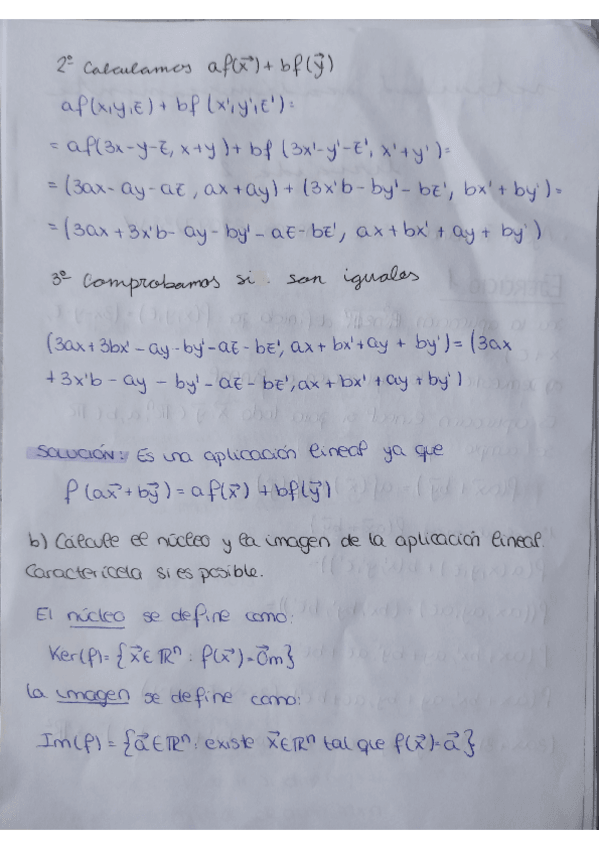 2º Calculamos af(x⃗) + bf(y⃗)
af(x,y,z) + bf(x',y',z') =
= af(3x-y-z, x+y) + bf(3x'-y'-z', x'+y') =
= (3ax-ay-az, ax+ay) + (3x'b-by'-bz', bx'+by') =
= (3ax+3x'b-ay-by'-az-bz', ax+bx'+ay+by')
3º Comprobamos si son iguales
(3ax+3bx'-ay-by'-az-bz', ax+bx'+ay+by') = (3ax
+3x'b-ay-by'-az-bz', ax+bx'+ay+by')
SOLUCIÓN: Es una aplicación lineal ya que
f(ax⃗+by⃗) = af(x⃗) + bf(y⃗)
b) Calcule el núcleo y la imagen de la aplicación lineal.
Caracterícela si es posible.
El núcleo se define como:
Ker(f) = {x⃗∈ℝⁿ : f(x⃗)=0⃗m}
La imagen se define como:
Im(f) = {a⃗∈ℝⁿ: existe x⃗∈ℝⁿ tal que f(x⃗)=a⃗}